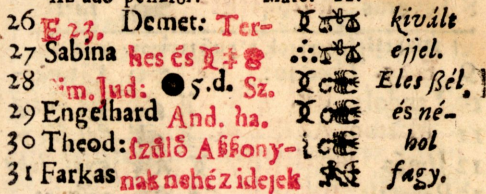 26 E 23. Demet: Ter- kivált
27 Sabina hes és éjjel.
28 Sim. Jud: 5. d. Sz. Eles ßél,
29 Engelhard And. ha. és né-
30 Theod: ſzülő Aßßony- hol
31 Farkas nak nehéz idejek fagy.